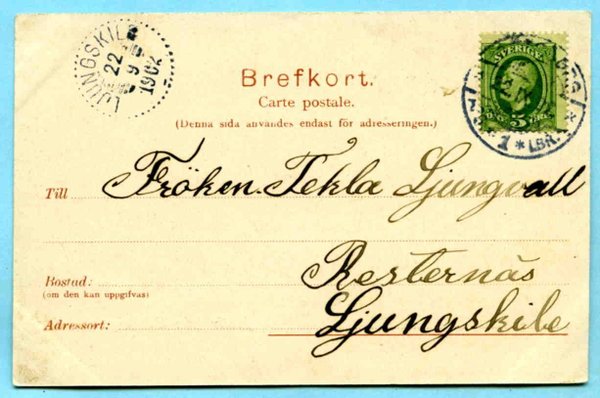 LJUNGSKILE
22
9
1902
Brefkort.
Carte postale.
(Denna sida användes endast för adresseringen.)
SVERIGE
5
1 * LBR.
Till Fröken Tekla Ljungvall
Bostad: Resternäs
(om den kan uppgifvas)
Adressort: Ljungskile